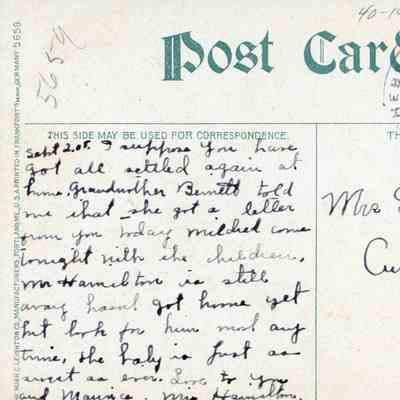 40-1
5659
Post Car
THIS SIDE MAY BE USED FOR CORRESPONDENCE.
TH
Sept 2.08. I suppose you have
got all settled again at
home. Grandmother Bennett told
me that she got a letter
from you today Mildred come
tonight with the children.
Mr Hamilton is still
away hasnt got home yet
but look for him most any
time, she baby is just as
sweet as ever. Love to you
and Maurice. Mrs Hamilton.
Mrs
Cu
HUGH C. LEIGHTON CO., MANUFACTURERS, PORTLAND, ME., U.S.A. PRINTED IN FRANKFORT GERMANY 5659.